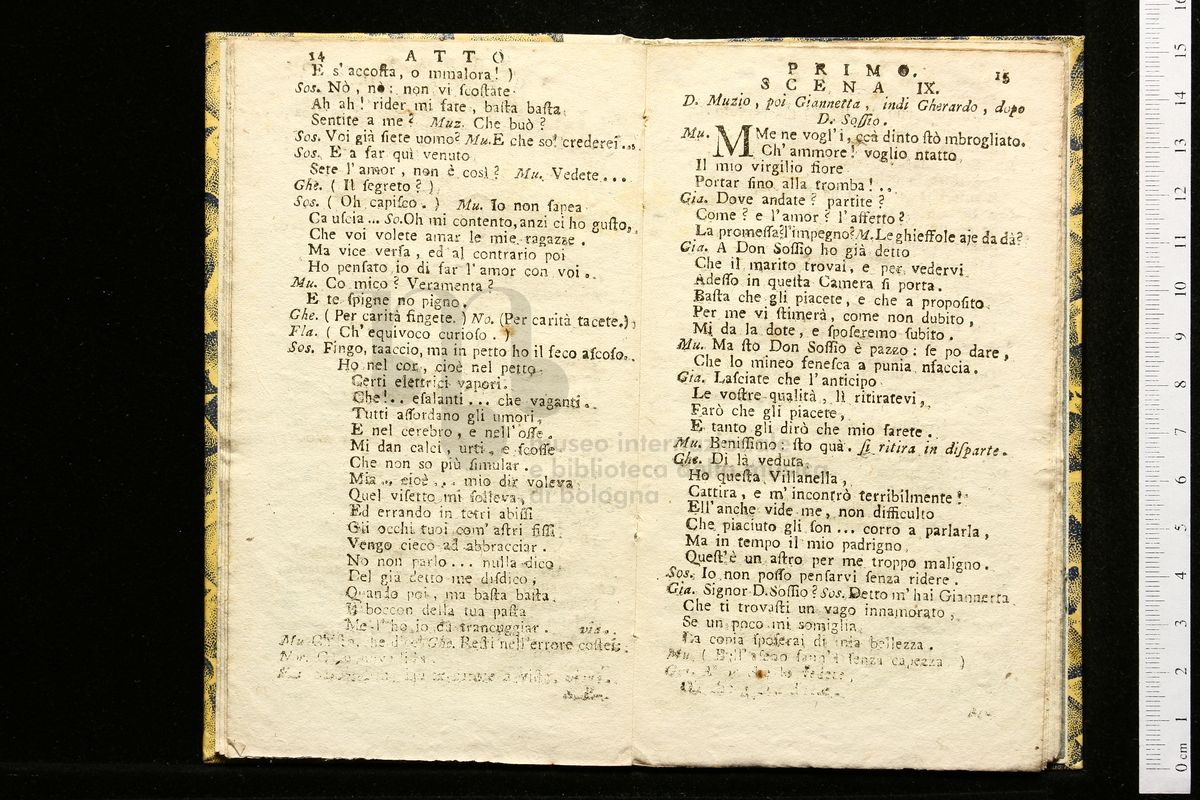 14 ATTO
E s'accoſta, o mmalora! )
Sos. Nò, nò: non vi ſcoſtate
Ah ah! rider mi fate, baſta baſta
Sentite a me? Muz. Che buò?
Sos. Voi già ſiete uomo? Mu. E che so! crederei...
Sos. E a far quì venuto
Sete l'amor, non è così? Mu. Vedete...
Ghe. ( Il ſegreto? )
Sos. ( Oh capiſco. ) Mu. Io non ſapea
Ca uſcia... So. Oh mi contento, anzi ci ho guſto,
Che voi volete amar le mie ragazze.
Ma vice verſa, ed al contrario poi
Ho penſato io di far l'amor con voi.
Mu. Co mico? Veramente?
E te ſpigne no pigno.
Ghe. ( Per carità fingete. ) No. (Per carità tacete.)
Fla. ( Ch'equivoco curioſo. )
Sos. Fingo, taaccio, ma in petto ho il ſeco aſcoſo,
Ho nel cor, cioè nel petto
Certi elettrici vapori.
Che!.. eſalanti... che vaganti.
Tutti aſſordano gli umori,
E nel cerebro, e nell'oſſe
Mi dan calci, urti, e ſcoſſe
Che non so più ſimular.
Mia.. cioè... mio dir voleva
Quel viſetto mi ſolleva,
Ed errando in tetri abiſſi
Gli occhi tuoi com'aſtri fiſſi
Vengo cieco ad abbracciar.
No non parlo... nulla dico
Del già detto me diſdico,
Quando poi, ma baſta baſta
Il boccon della tua paſta
Me l'ho io da francuggiar. via.
Mu. he Ghe. Reſti nell'errore coſteſ.
PRIMO. 15
SCENA IX.
D. Muzio, poi Giannetta, indi Gherardo, dopo
D. Soſſio.
Mu. MMe ne vogl'i, ccà dinto ſtò mbrogliato.
Ch'ammore! voglio ntatto
Il mio virgilio fiore
Portar fino alla tromba!..
Gia. Dove andate? partite?
Come? e l'amor? l'affetto?
La promeſſa? l'impegno? M. Le ghieffole aje da dà?
Gia. A Don Soſſio ho già detto
Che il marito trovai, e per vedervi
Adeſſo in queſta Camera ſi porta.
Baſta che gli piacete, e che a propoſito
Per me vi ſtimerà, come non dubito,
Mi da la dote, e ſpoſeremo ſubito.
Mu. Ma ſto Don Soſſio è pazzo: ſe po dare,
Che lo mineo feneſca a punia nfaccia.
Gia. Laſciate che l'anticipo
Le voſtre qualità, lì ritiratevi,
Farò che gli piacete,
E tanto gli dirò che mio ſarete.
Mu. Beniſſimo: ſto quà. ſi ritira in diſparte.
Ghe. Di là veduta
Ho queſta Villanella,
Cattira, e m'incontrò terribilmente!
Ell'anche vide me, non difficulto
Che piaciuto gli ſon... corro a parlarla,
Ma in tempo il mio padrigno
Queſt'è un aſtro per me troppo maligno.
Sos. Io non poſſo penſarvi ſenza ridere.
Gia. Signor D. Soſſio? Sos. Detto m'hai Giannetta
Che ti trovaſti un vago innamorato,
Se un poco mi somiglia
La copia ſpoſerai di mia bellezza.
Mu. ( ſenza capezza )